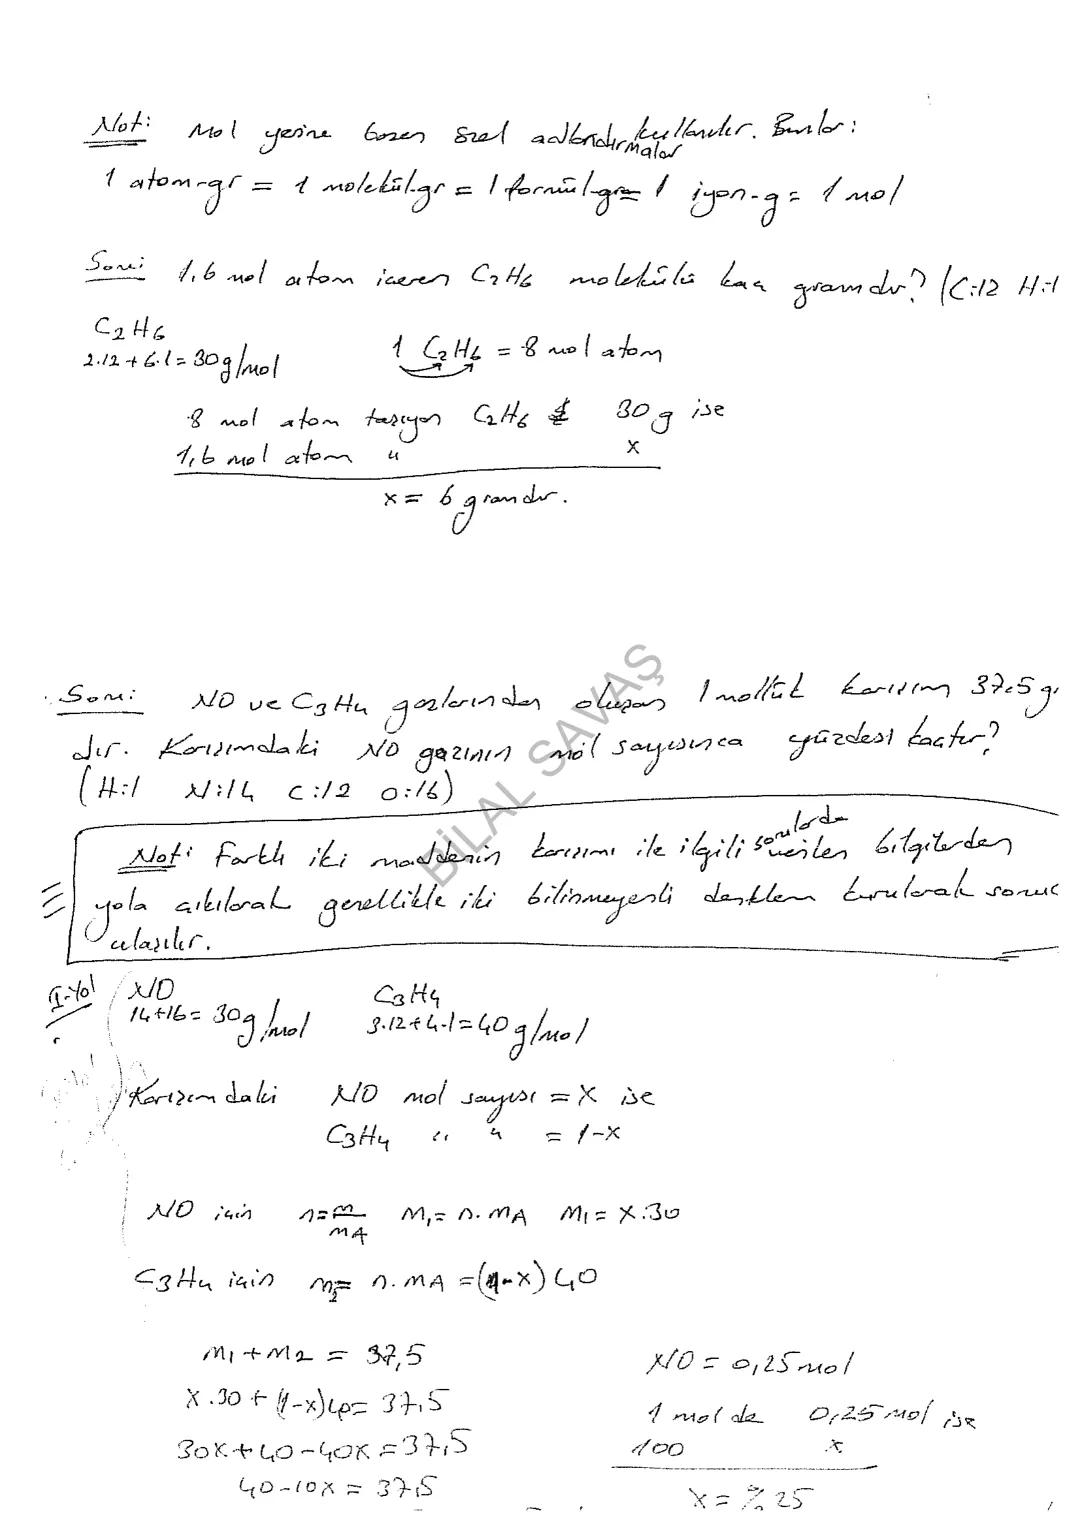 Not: Mol yerine bazen özel adlandırmalar kullanılır. Bunlar:
1 atom-gr = 1 molekül-gr = 1 formül-gram = 1 iyon-g = 1 mol
Soru: 1,6 mol atom içeren C2H6 molekülü kaç gramdır? (C:12 H:1
C2H6
2.12 + 6.1 = 30 g/mol
1 C2H6 = 8 mol atom
8 mol atom taşıyan C2H6 30 g ise
1,6 mol atom " x
x = 6 gramdır.
Soru: NO ve C3H4 gazlarından oluşan 1 mollük karışım 37.5 g.
dır. Karışımdaki NO gazının mol sayısınca yüzdesi kaçtır?
(H:1 N:14 C:12 O:16)
BİLAL SAVAŞ
Not: Farklı iki maddenin karışımı ile ilgili sorularda verilen bilgilerden
yola çıkılarak genellikle iki bilinmeyenli denklem kurularak sonuc
ulaşılır.
I-Yol NO C3H4
14+16 = 30 g/mol 3.12+4.1=40 g/mol
Karışımdaki NO mol sayısı = X ise
C3H4 " " = 1-X
NO için n = m/MA m1 = n.MA m1 = X.30
C3H4 için m2 = n.MA = (1-X) 40
m1 + m2 = 37,5
X.30 + (1-x)40 = 37,5
30X + 40 - 40X = 37,5
40 - 10X = 37,5
NO = 0,25 mol
1 mol de 0,25 mol ise
100 x
X = % 25